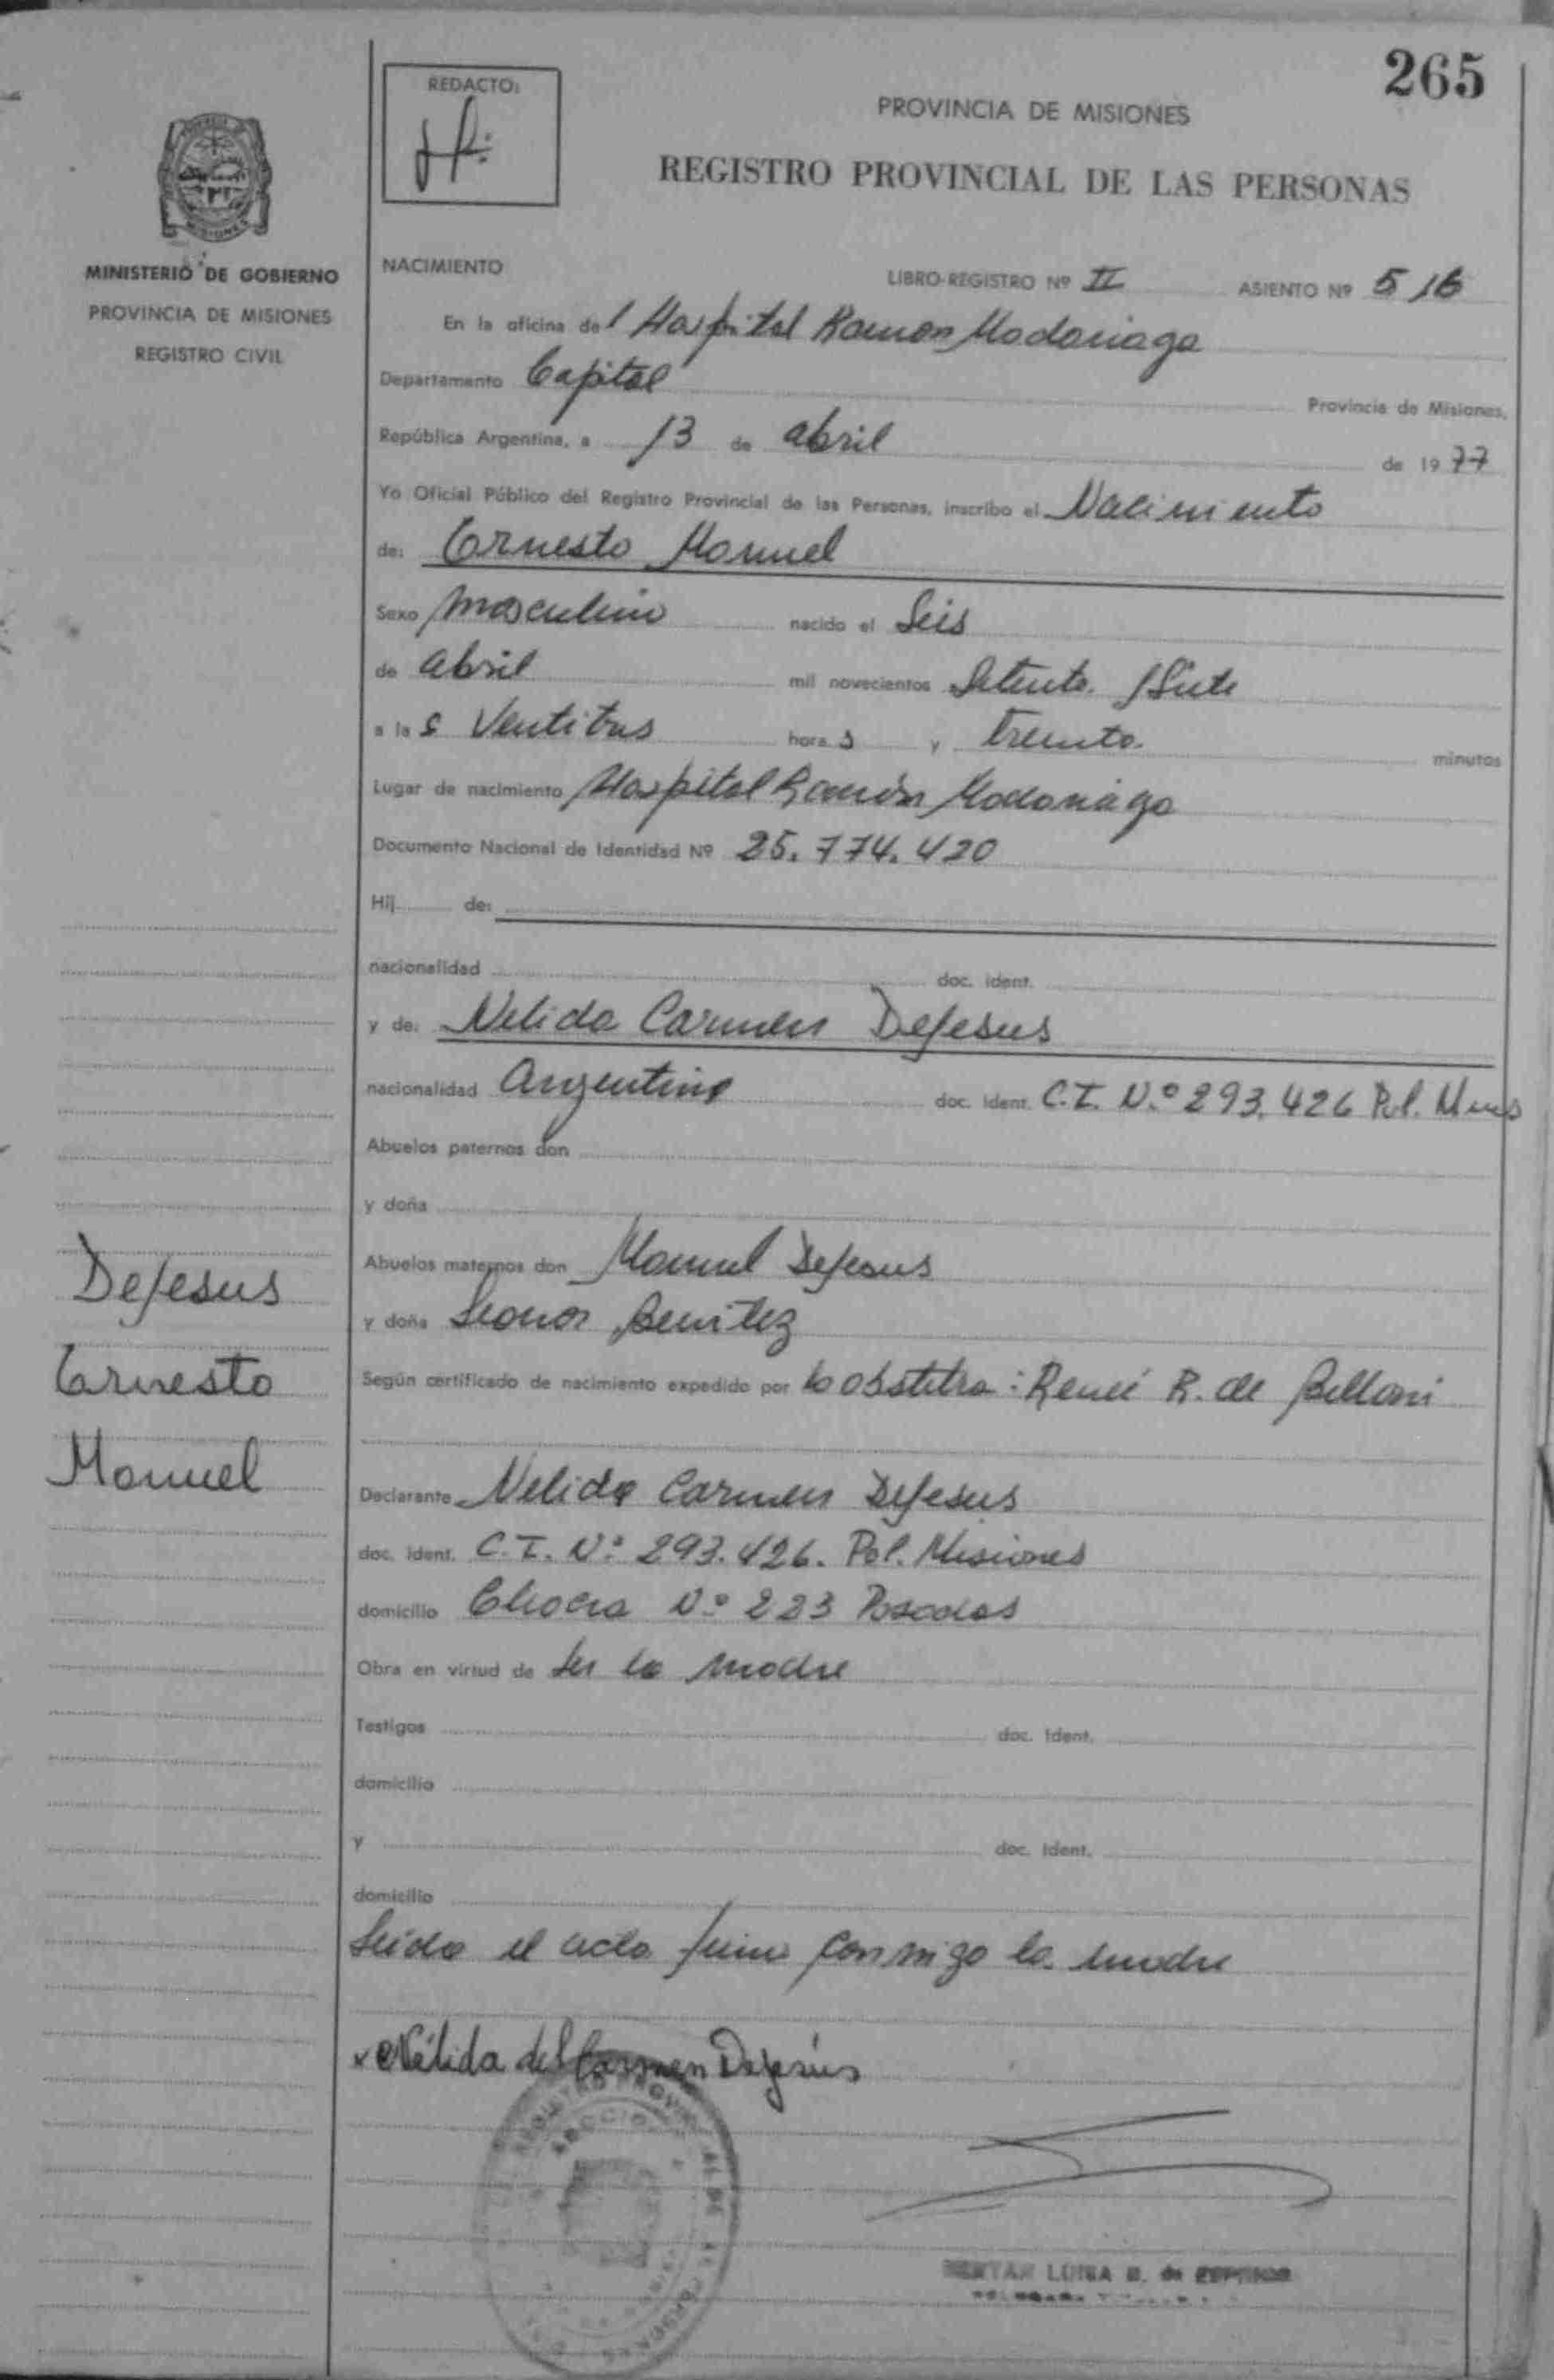 265
REDACTO:
PROVINCIA DE MISIONES
REGISTRO PROVINCIAL DE LAS PERSONAS
MINISTERIO DE GOBIERNO
PROVINCIA DE MISIONES
REGISTRO CIVIL
NACIMIENTO LIBRO-REGISTRO Nº II ASIENTO Nº 516
En la oficina del Hospital Ramon Madariaga
Departamento Capital Provincia de Misiones,
República Argentina, a 13 de abril de 1977
Yo Oficial Público del Registro Provincial de las Personas, inscribo el Nacimiento
de: Ernesto Manuel
Sexo masculino nacido el Seis
de abril mil novecientos Setenta y Siete
a las Ventitres horas y Treinta minutos
Lugar de nacimiento Hospital Ramón Madariaga
Documento Nacional de Identidad Nº 25.774.420
Hij de:
nacionalidad doc. ident.
y de: Nelida Carmen DeJesus
nacionalidad Argentina doc. ident. C.I. N.º 293.426 Pol. Mnes
Abuelos paternos don
y doña
Abuelos maternos don Manuel DeJesus
y doña Leonor Benitez
Según certificado de nacimiento expedido por la obstetra: Reneé R. de Belloni
DeJesus
Ernesto
Manuel
Declarante Nelida Carmen DeJesus
doc. ident. C.I. Nº 293.426. Pol. Misiones
domicilio Chacra Nº 223 Posadas
Obra en virtud de ser la madre
Testigos doc. Ident.
domicilio
y doc. Ident.
domicilio
Leída el acta firma conmigo la madre
x Nélida del Carmen Dejesús
REGISTRO PROVINCIAL DE LAS
LUISA